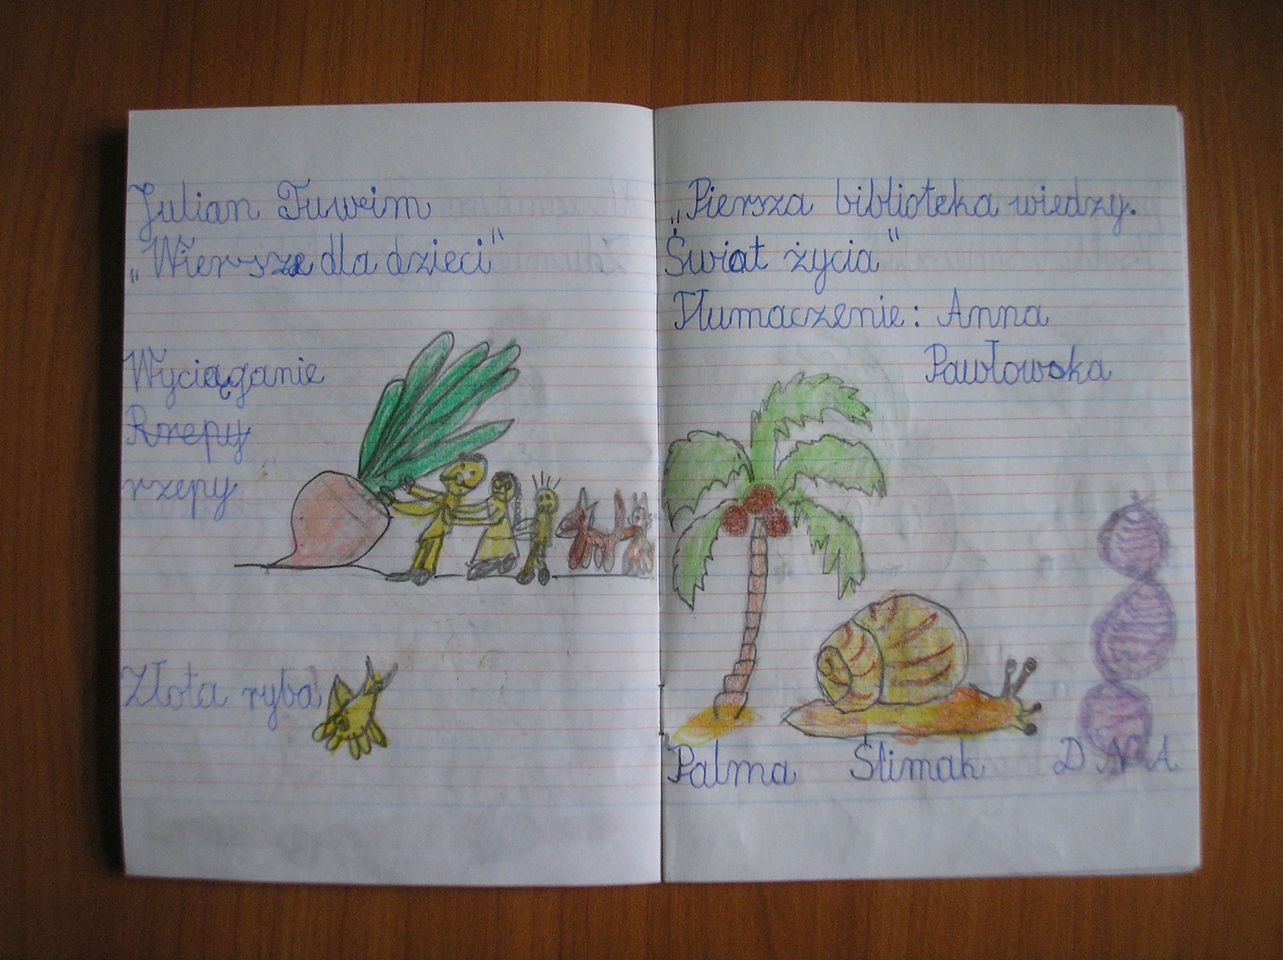 Julian Tuwim
„Wiersze dla dzieci"
Wyciąganie
Rzepy
rzepy
Złota ryba
„Piersza biblioteka wiedzy.
Świat życia"
Tłumaczenie: Anna
Pawłowska
Palma Ślimak DNA